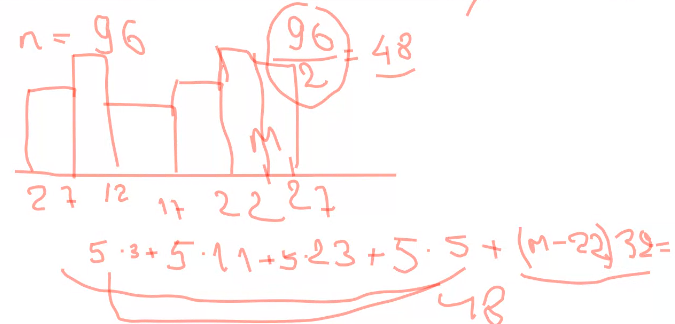 n = 96
96/2 = 48
M
2 7 12 17 22 27
5·3+5·11+5·23+5·5+(M-22)32=
48